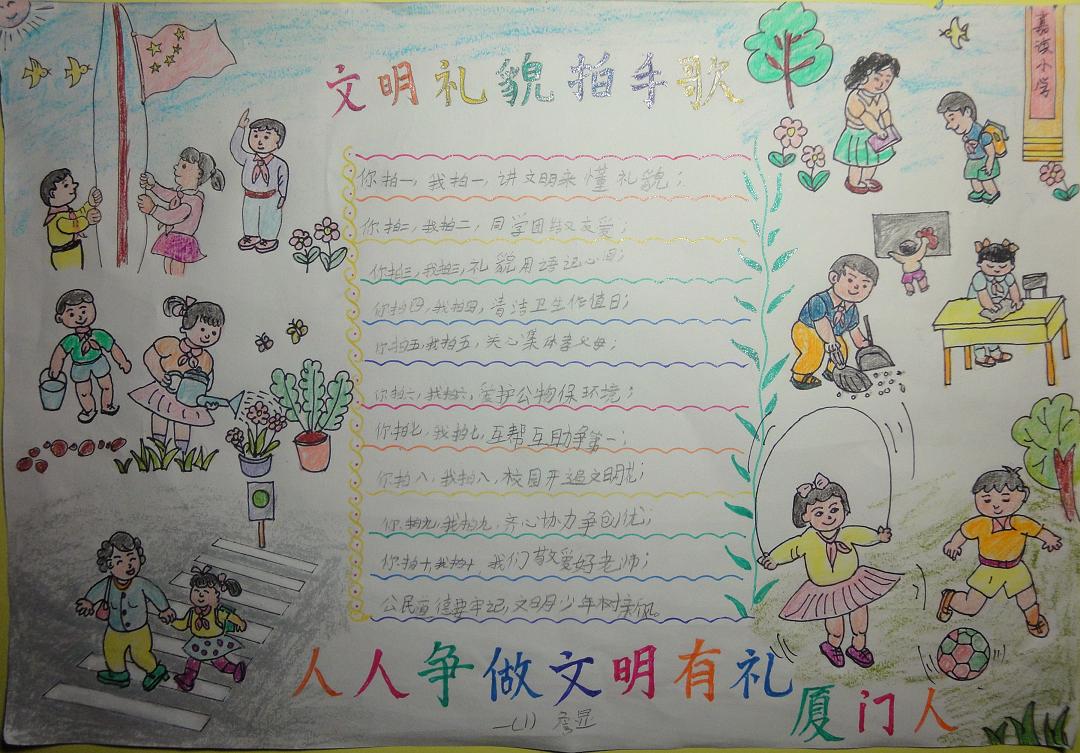 文明礼貌拍手歌
嘉滨小学
你拍一，我拍一，讲文明来懂礼貌；
你拍二，我拍二，同学团结又友爱；
你拍三，我拍三，礼貌用语记心间；
你拍四，我拍四，清洁卫生作值日；
你拍五我拍五，关心集体孝父母；
你拍六，我拍六，爱护公物保环境；
你拍七，我拍七，互帮互助争第一；
你拍八，我拍八，校园开遍文明花；
你拍九，我拍九，齐心协力争创优；
你拍十，我拍十，我们敬爱好老师；
公民道德要牢记，文明少年树新风。
人人争做文明有礼
厦门人
一(1)